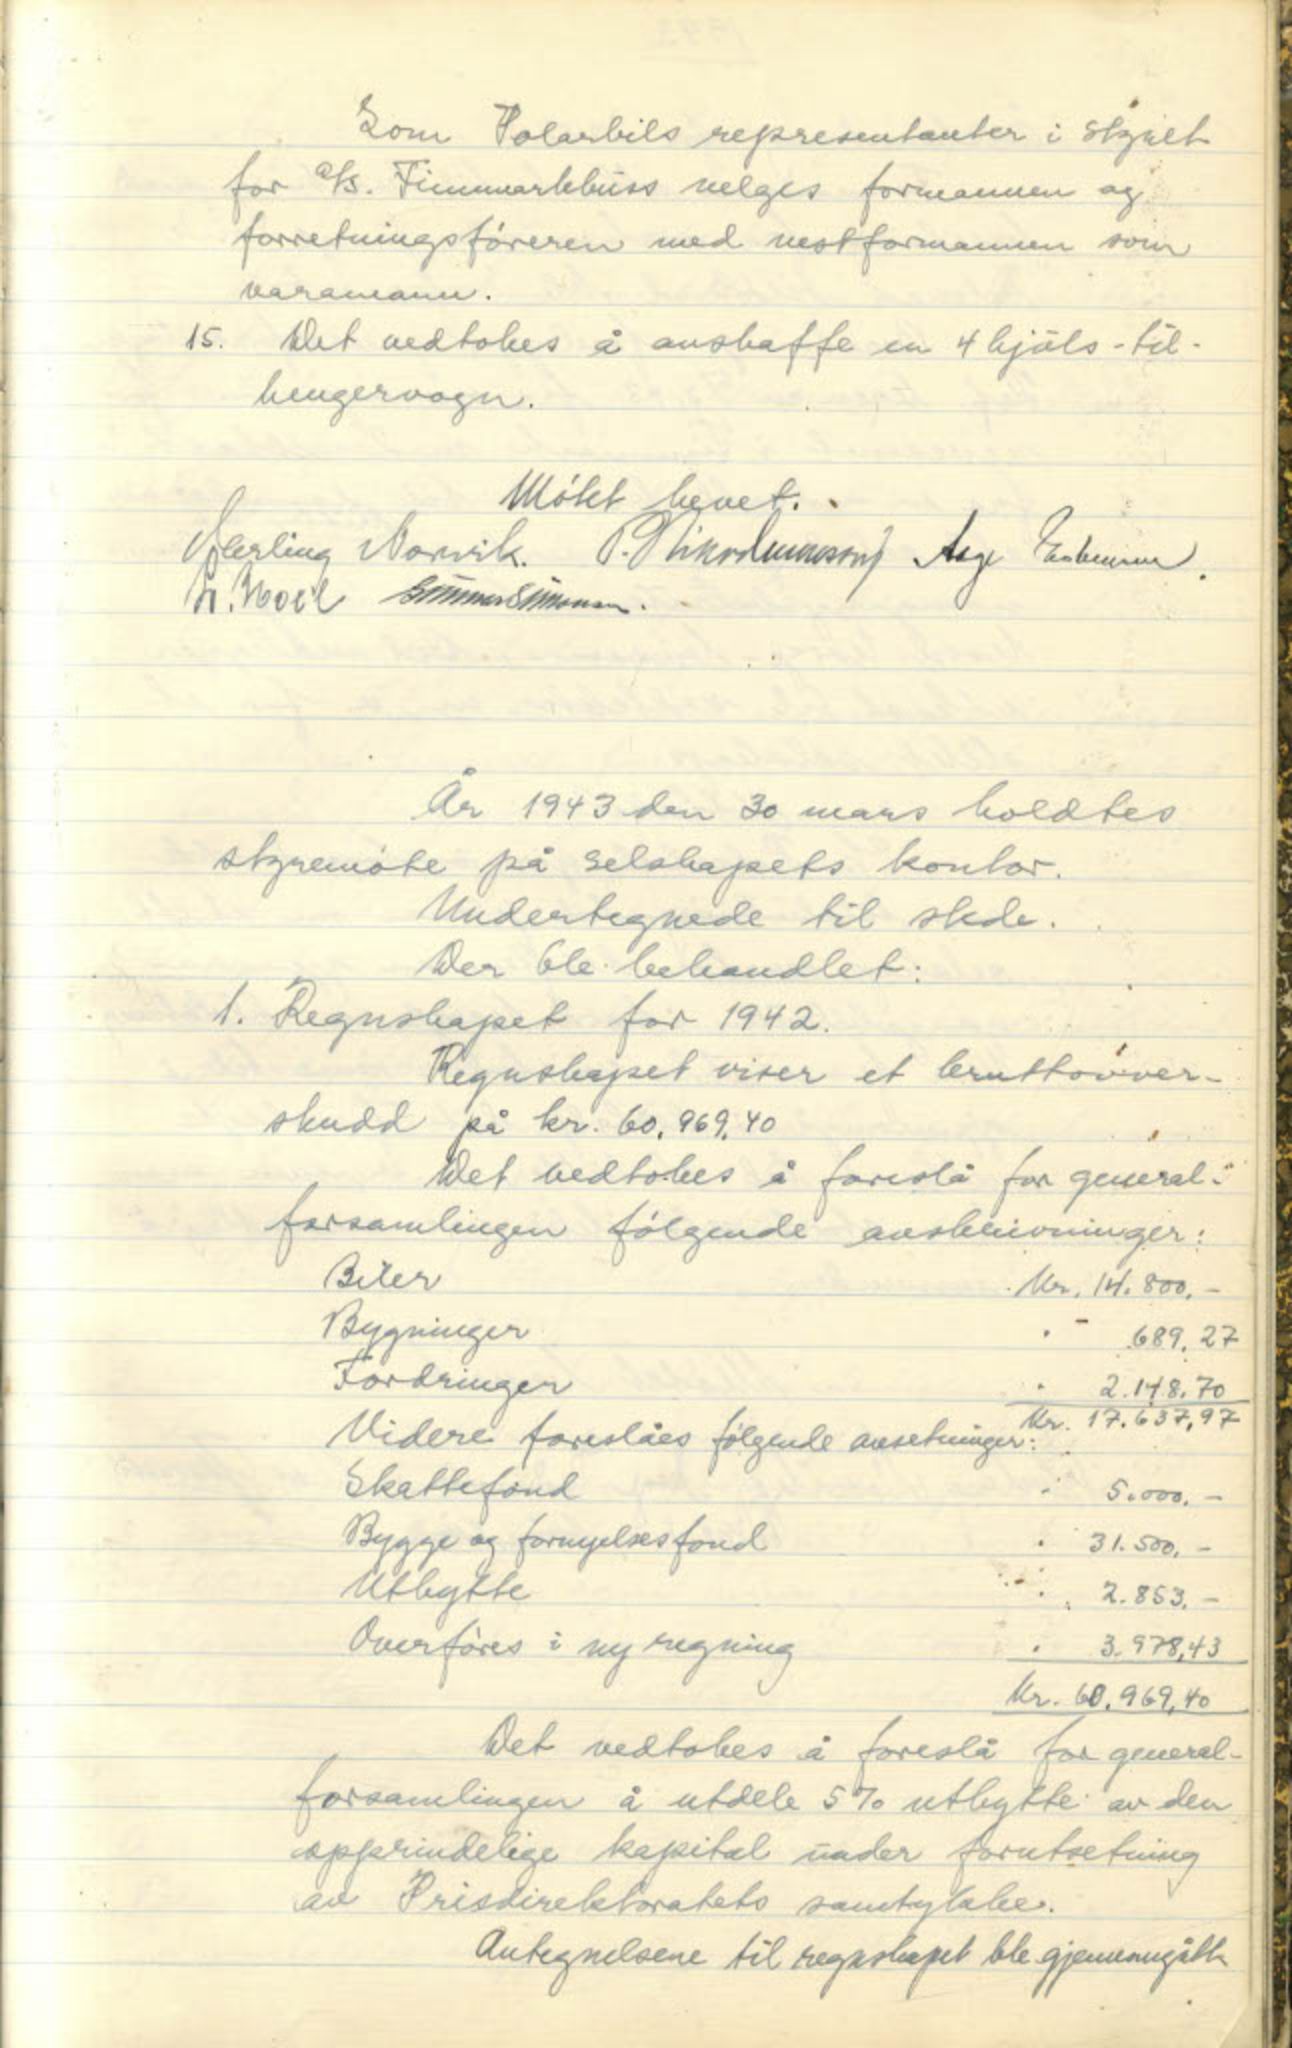 Som Polarbils representanter i styret
for A/S. Finnmarkbuss velges formannen og
forretningsføreren med nestformannen som
varamann.
15. Det vedtokes å anskaffe en 4 hjuls-til-
hengervogn.
Møtet hevet.
Sverling Norvik. P. Nikodemussen Aage
H. Moeil Simonsen.
År 1943 den 30 mars holdtes
styremøte på selskapets kontor.
Undertegnede til stede.
Der ble behandlet:
1. Regnskapet for 1942.
Regnskapet viser et bruttoover-
skudd på kr. 60.969,40
Det vedtokes å foreslå for general-
forsamlingen følgende avskrivninger:
Biler Kr. 14.800.-
Bygninger " 689.27
Fordringer " 2.148.70
Kr. 17.637,97
Videre foreslåes følgende avsetninger:
Skattefond " 5.000.-
Bygge og fornyelsesfond " 31.500.-
Utbytte " 2.853.-
Overføres i ny regning " 3.978,43
Kr. 60.969,40
Det vedtokes å foreslå for general-
forsamlingen å utdele 5% utbytte av den
opprindelige kapital under forutsetning
av Prisdirektoratets samtykke.
Antegnelsene til regnskapet ble gjennemgått